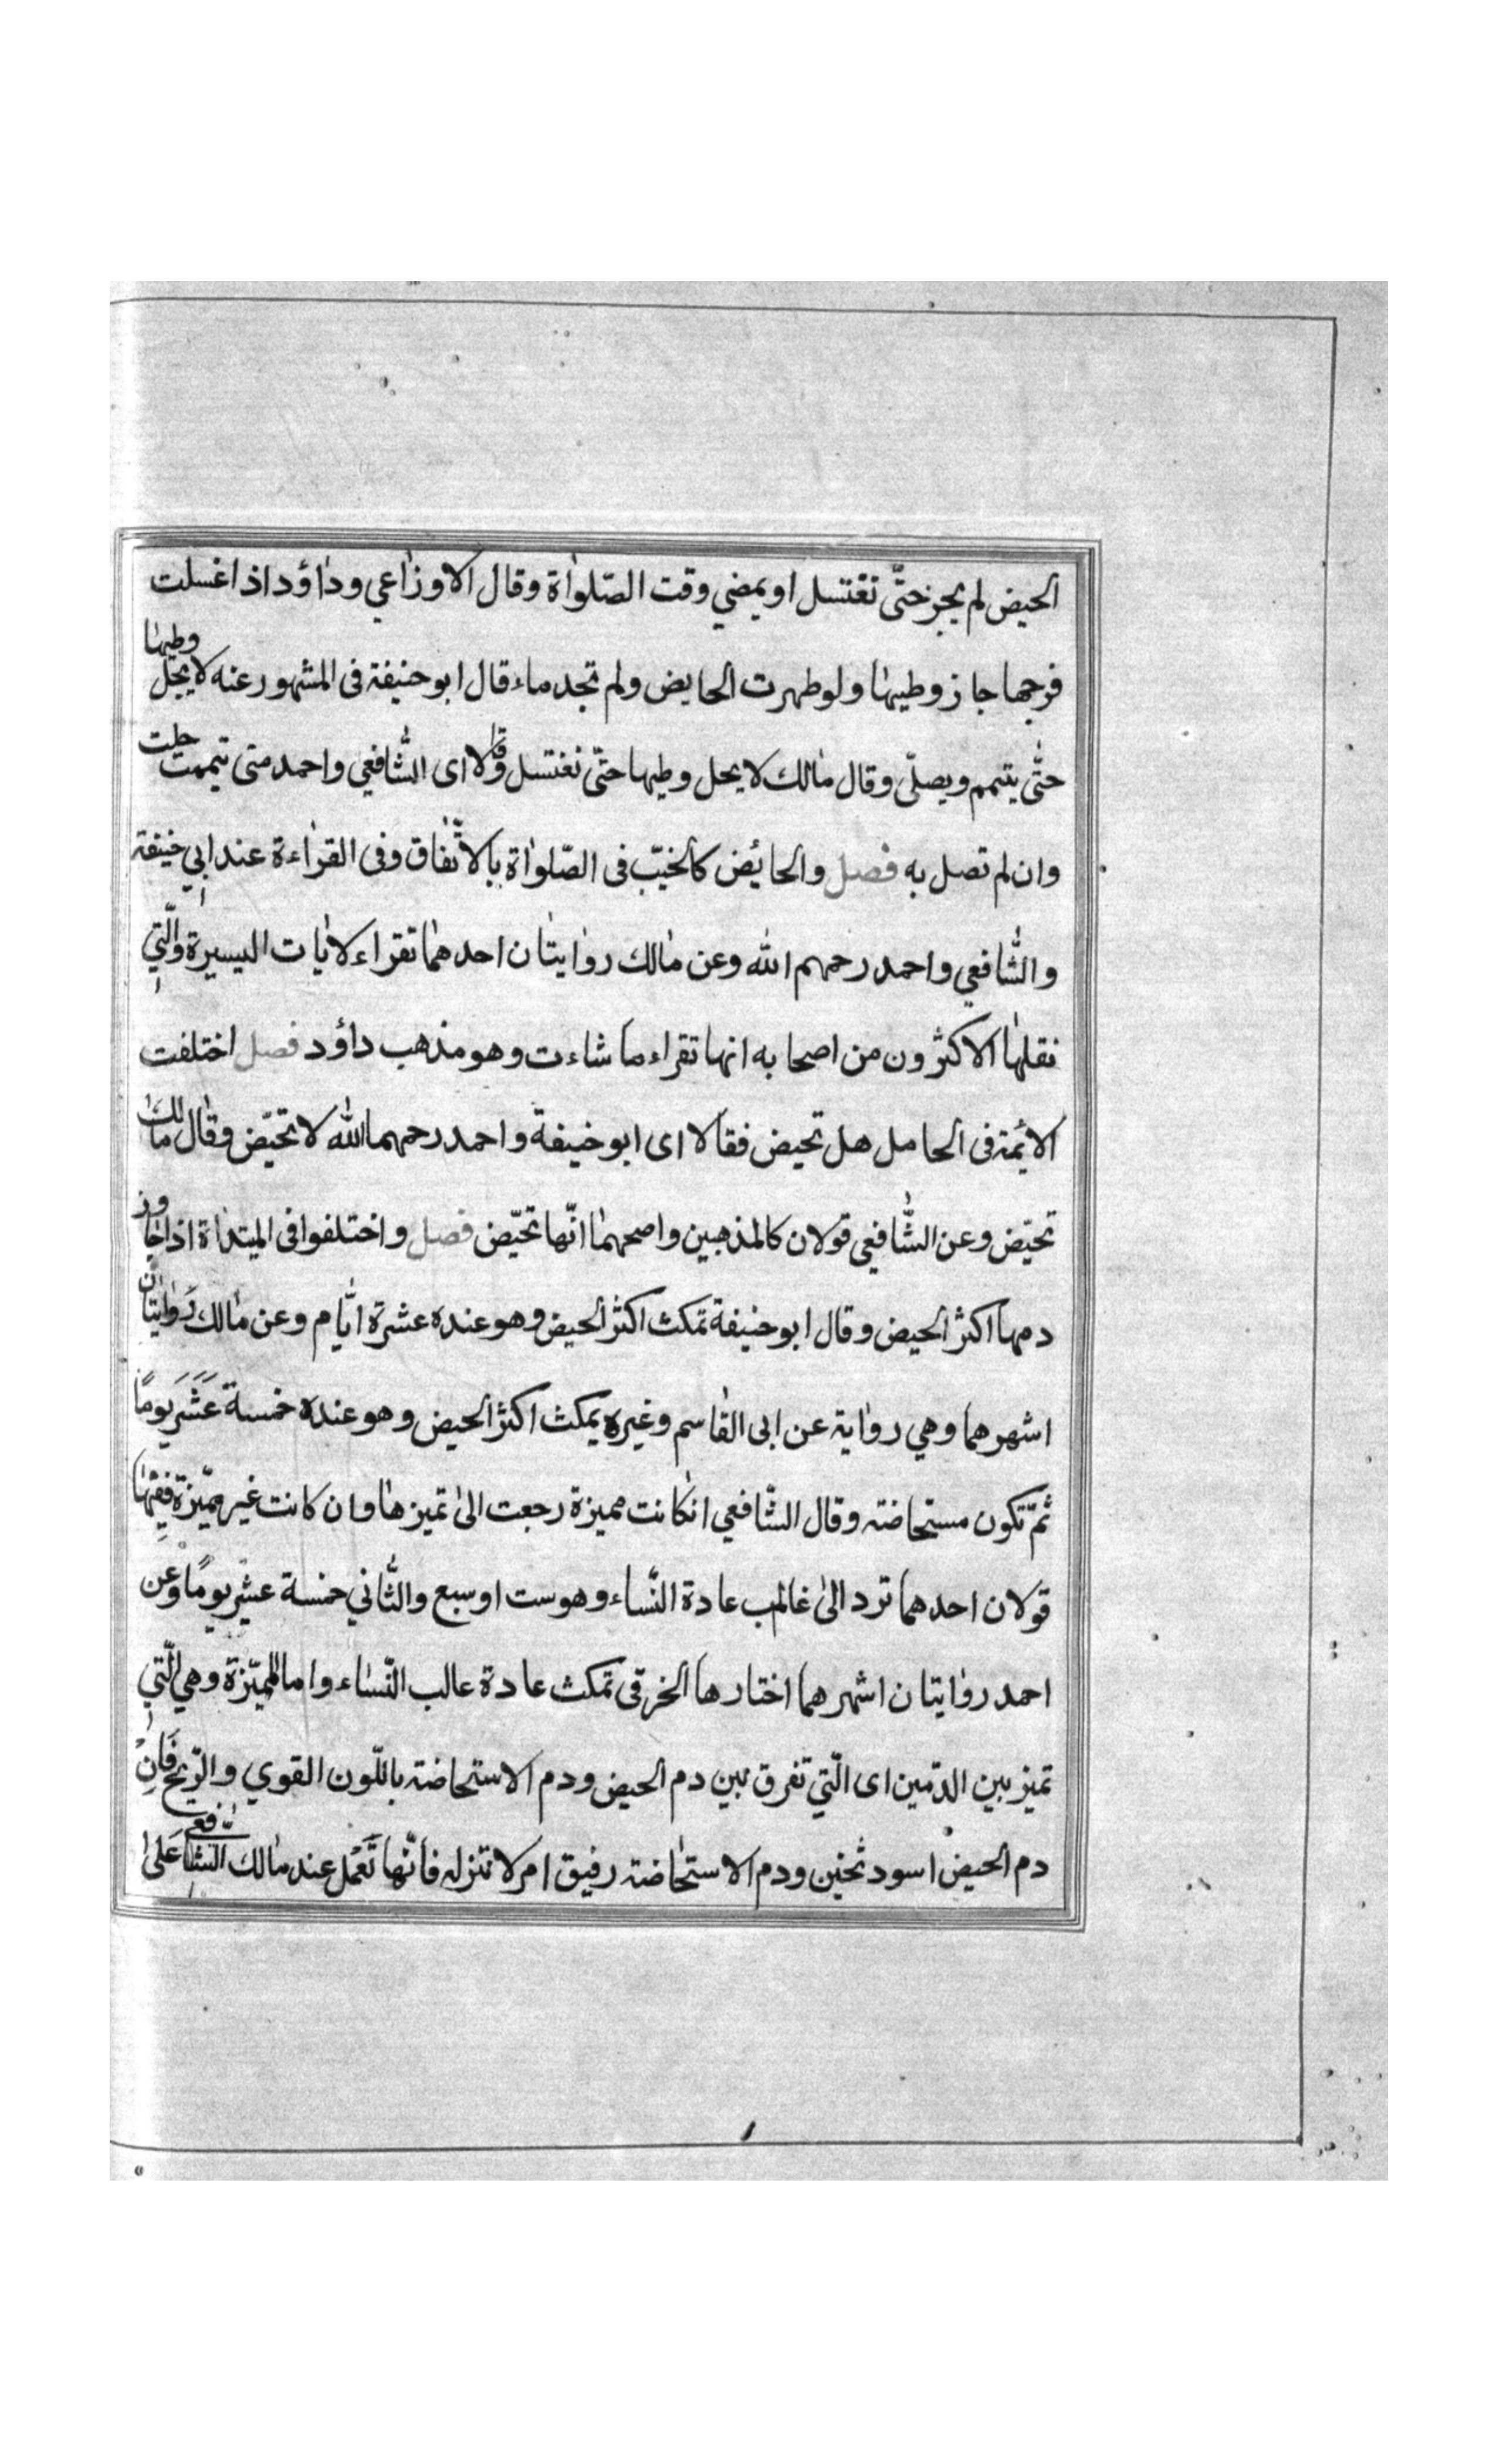 الحيض لم يجز حتّى تغتسل او يمضي وقت الصّلواة وقال الاوزاعي وداؤد اذا غسلت
فرجها جاز وطيها ولو طهرت الحايض ولم تجد ماء قال ابو حنيفة فى المشهور عنه لا يحلّ وطيها
حتّى يتيمم ويصلّى وقال مالك لا يحل وطيها حتّى تغتسل وقالا اى الشّافعي واحمد متى تيممت حلت
وان لم تصل به فصل والحائض كالجنب فى الصّلواة بالاتّفاق وفى القراءة عند ابي حنيفة
والشّافعي واحمد رحمهم الله وعن مالك روايتان احدهما تقراء لايات اليسيرة والّتي
نقلها الاكثرون من اصحابه انها تقراء ما شاءت وهو مذهب داؤد فصل اختلفت
الائمة فى الحامل هل تحيض فقالا اى ابو حنيفة واحمد رحمهما الله لا تحيّض وقال مالك
تحيّض وعن الشّافعي قولان كالمذهبين واصحهما انّها تحيّض فصل واختلفوا فى المبتداة اذا جاوز
دمها اكثر الحيض وقال ابو حنيفة تمكث اكثر الحيض وهو عنده عشرة ايّام وعن مالك روايتان
اشهرهما وهي رواية عن ابى القاسم وغيره يمكث اكثر الحيض وهو عنده خمسة عَشَرَ يومًا
ثمّ تكون مستحاضة وقال الشّافعي انكانت مميزة رجعت الى تميزها وان كانت غير مميّزة ففيها
قولان احدهما ترد الى غالب عادة النّساء وهو ست او سبع والثّاني خمسة عشر يومًا وعن
احمد روايتان اشهرهما اختارها الخرقى تمكث عادة عالب النّساء واما المميّزة وهي الّتي
تميز بين الدمّين اى الّتي تفرق بين دم الحيض ودم الاستحاضة باللّون القوي والرّيح فَاِنْ
دم الحيض اسود ثخين ودم الاستحاضة رفيق امر لا تنزله فانّها تَعْمَل عند مالك الشّافعي عَلى